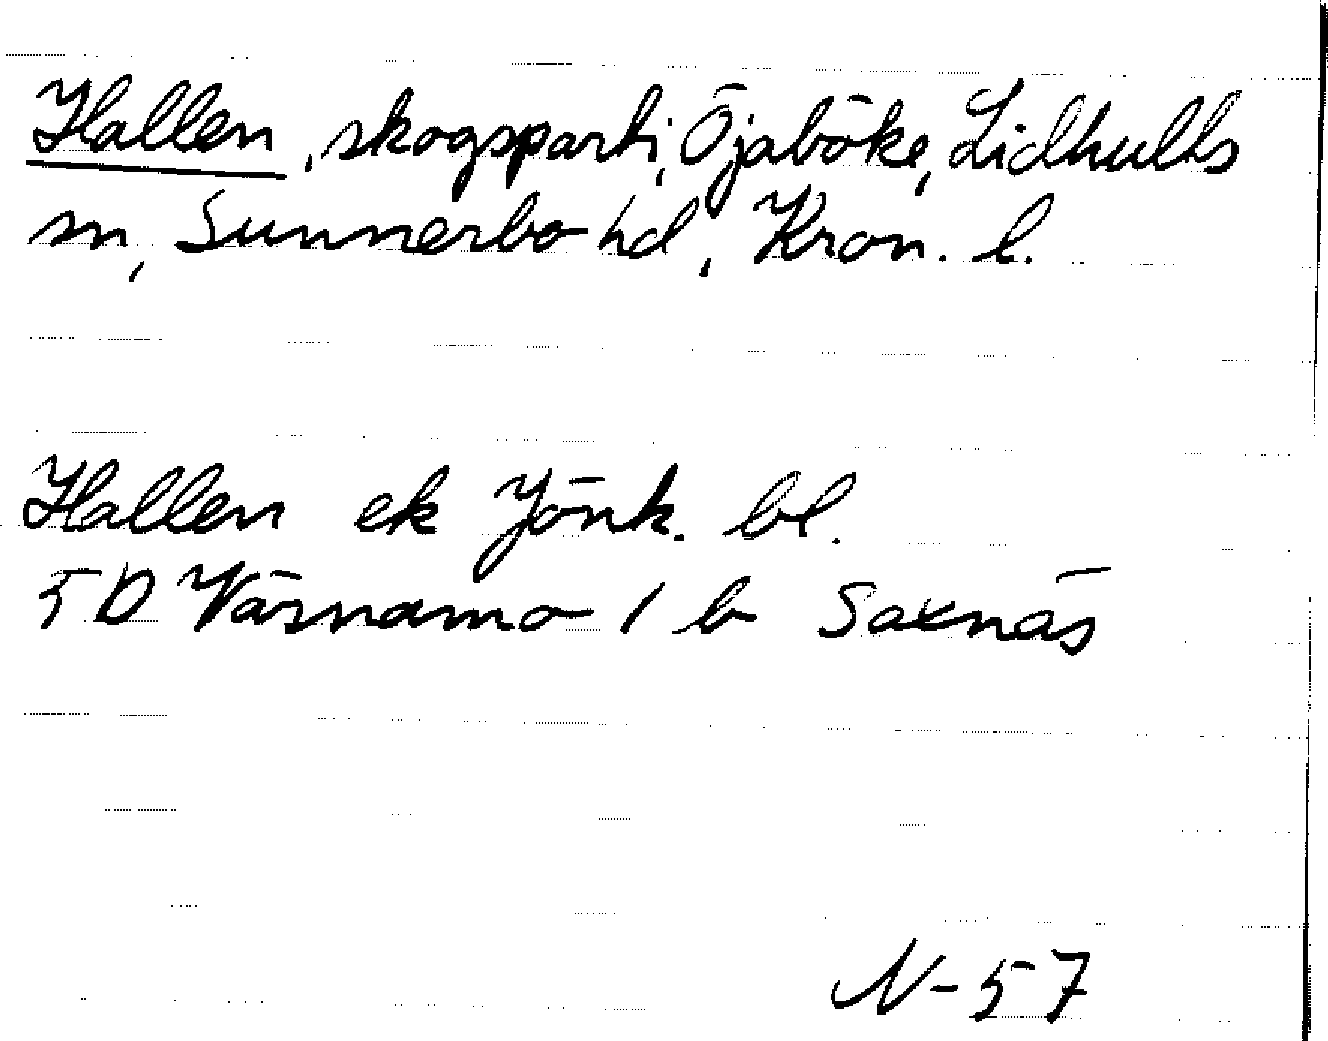 Hallen, skogsparti, Öjaböke, Lidhults
sn, Sunnerbo hd, Kron. l.
Hallen ek Jönk. bl.
5D Värnamo 1 b Saxnäs
N-57